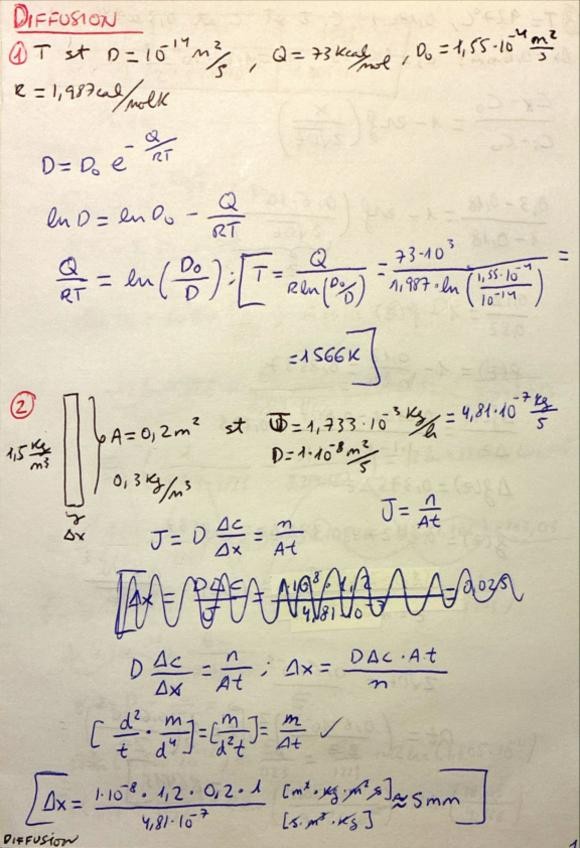 DIFFUSION
① T st D = 10⁻¹⁴ m²/s , Q = 73 Kcal/mol , D₀ = 1,55·10⁻⁴ m²/s
R = 1,987 cal/molK
D = D₀ e^(-Q/RT)
ln D = ln D₀ - Q/RT
Q/RT = ln(D₀/D) ; [T = Q/(R ln(D₀/D)) = 73·10³/(1,987·ln(1,55·10⁻⁴/10⁻¹⁴)) =
= 1566K]
② 1,5 Kg/m³ } A = 0,2 m² st J = 1,733·10⁻³ Kg/h = 4,81·10⁻⁷ Kg/s
0,3 Kg/m³ D = 1·10⁻⁸ m²/s
Δx
J = D Δc/Δx = n/At J = n/At
D Δc/Δx = n/At ; Δx = DΔc·At/n
[d²/t · m/d⁴] = [m/d²t] = m/At ✓
[Δx = 1·10⁻⁸ · 1,2 · 0,2 · 1 / 4,81·10⁻⁷ [m²·kg·m²·s]/[s·m³·kg] ≈ 5mm]
DIFFUSION 1